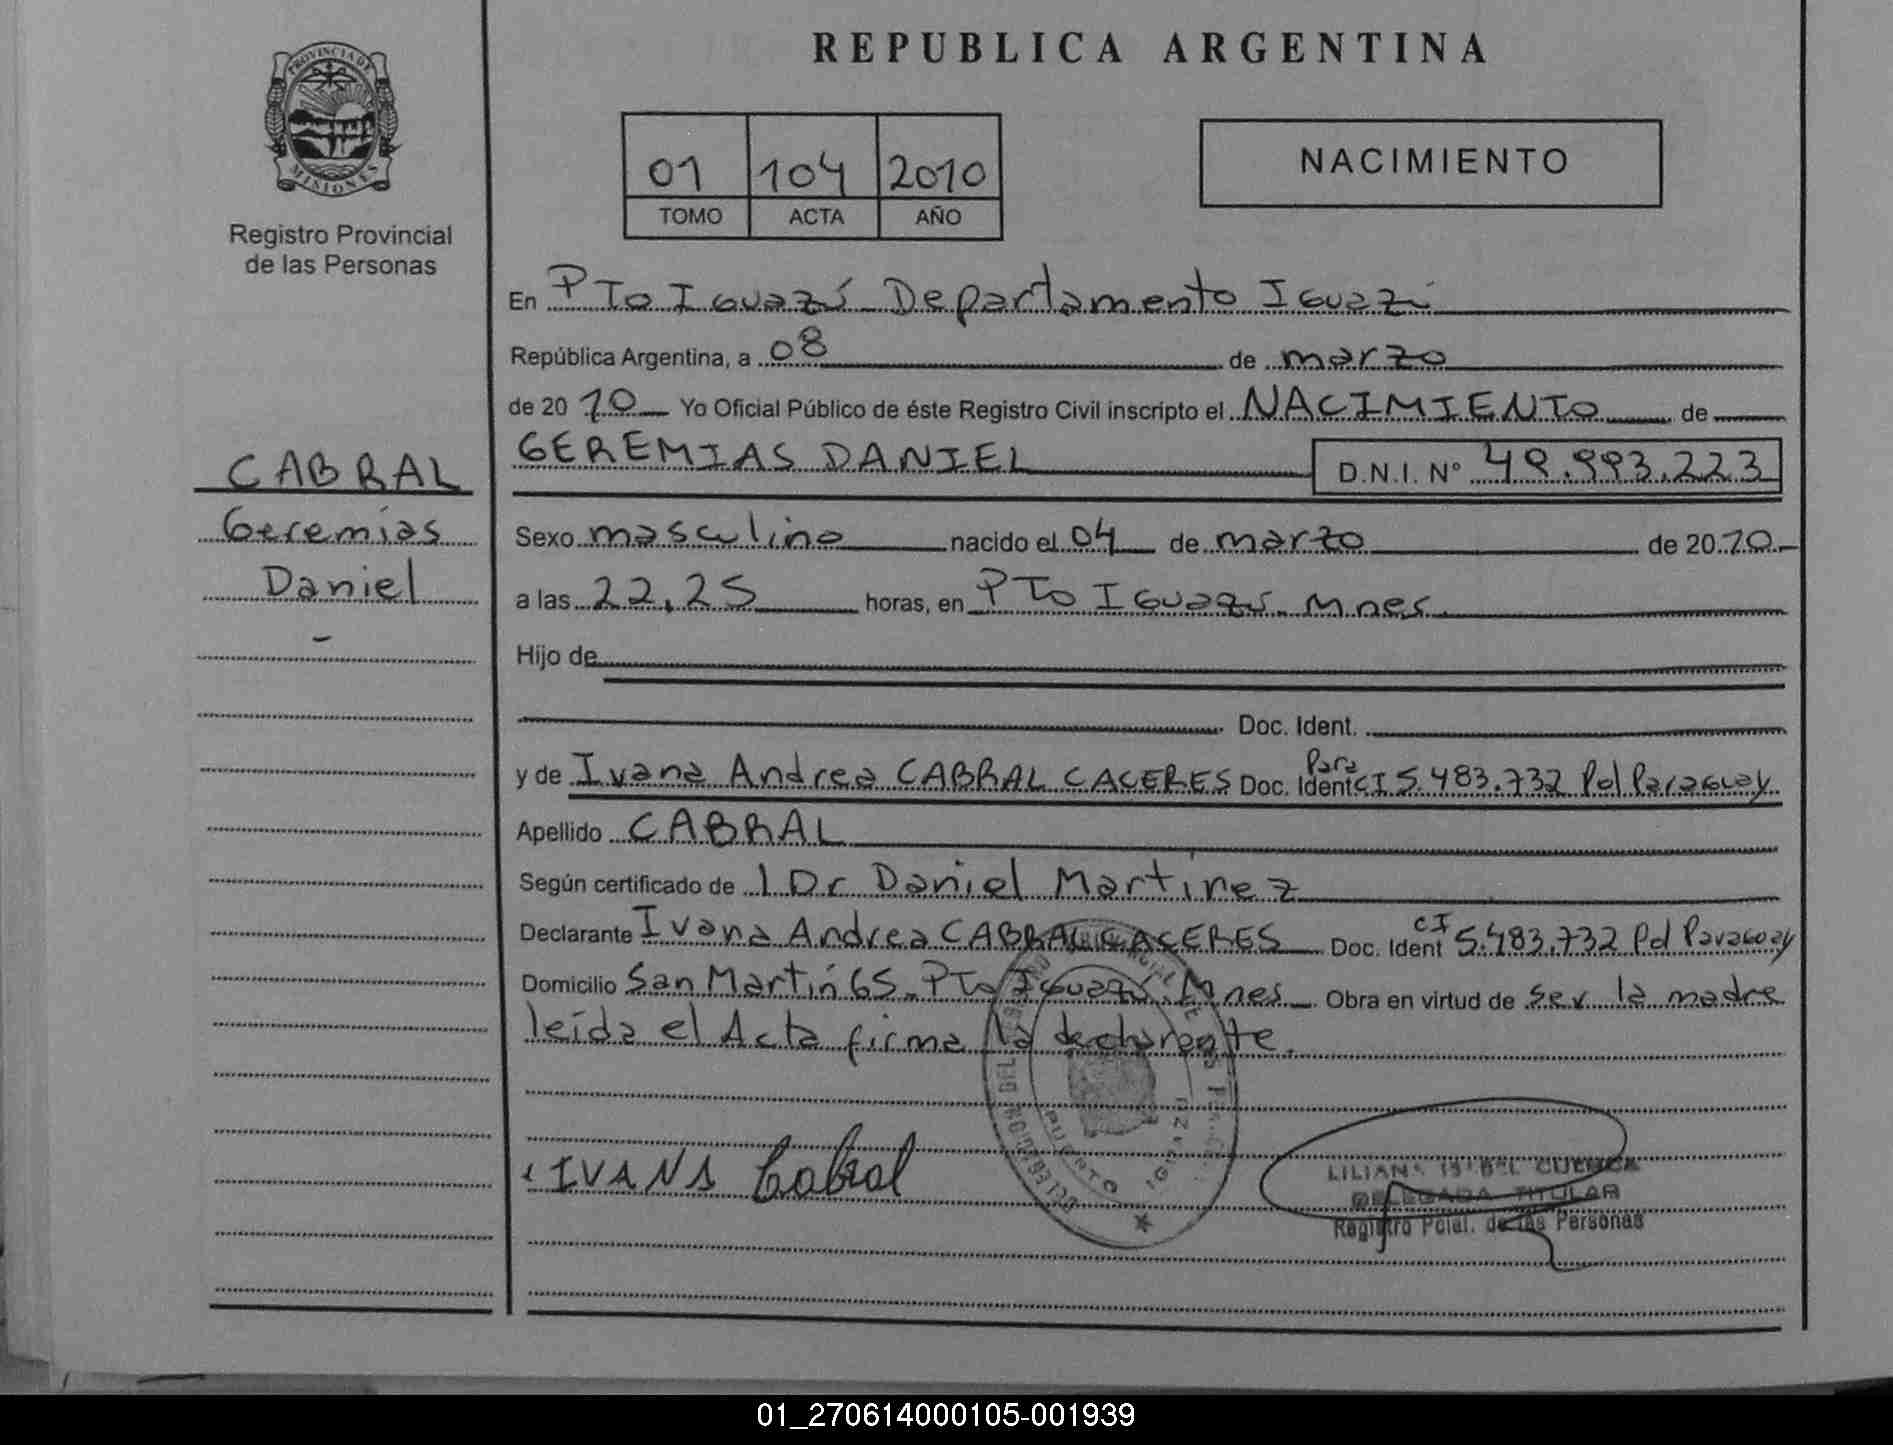 REPUBLICA ARGENTINA
PROVINCIA DE
MISIONES
Registro Provincial
de las Personas
01 104 2010
TOMO ACTA AÑO
NACIMIENTO
En Pto Iguazú Departamento Iguazú
República Argentina, a 08 de marzo
de 2010 Yo Oficial Público de éste Registro Civil inscripto el NACIMIENTO de
GEREMIAS DANIEL D.N.I. Nº 49.993.223
CABRAL
Geremias
Daniel
Sexo masculino nacido el 04 de marzo de 2010
a las 22,25 horas, en Pto Iguazú. Mnes.
Hijo de
Doc. Ident.
y de Ivana Andrea CABRAL CACERES Doc. Ident CI 5.483.732 Pol Paraguay
Para
Apellido CABRAL
Según certificado de l Dr Daniel Martinez
Declarante Ivana Andrea CABRAL CACERES Doc. Ident CI 5.483.732 Pol Paraguay
Domicilio San Martín 65. Pto Iguazú Mnes Obra en virtud de ser la madre
leída el Acta firma la declarante.
PUERTO IGUAZU
IVANA Cabral
LILIANA ISABEL CUENCA
DELEGADA TITULAR
Registro Pcial. de las Personas
01_270614000105-001939